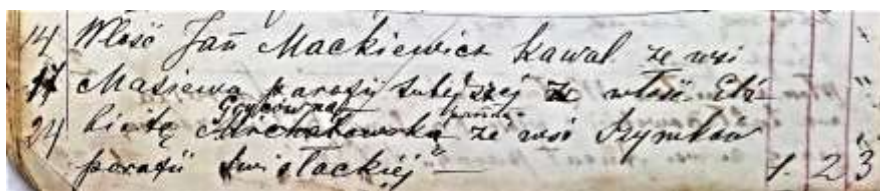 14 Włość Jan Mackiewicz Kawal. ze wsi
17 Masiewa parafii tutejszej z włość. Elż
24 bietę Michałowską panną ze wsi Szymków
parafii Świsłockiéj — 1. 2 3